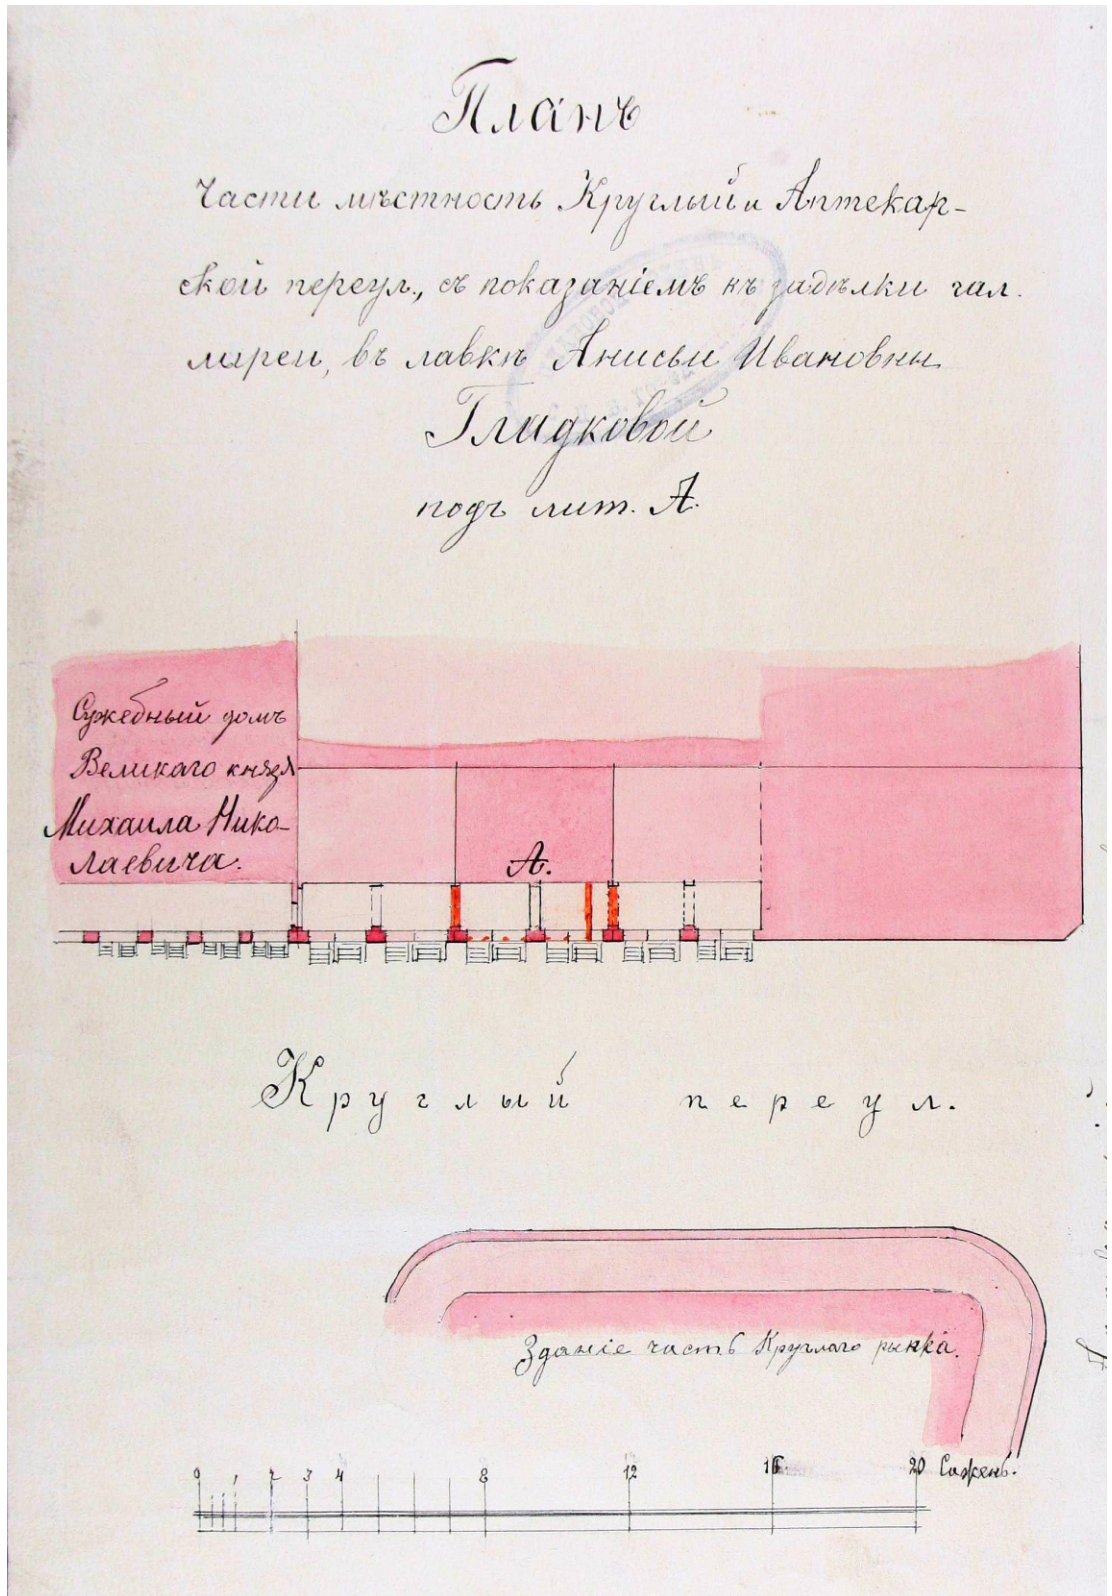 Планъ
Части мѣстность Круглый и Аптекар-
ской переул., съ показаніемъ къ задѣлки гал.
лиреи, въ лавкѣ Анисьи Ивановны
Гладковой
подъ лит. А.
Сужебный домъ
Великаго князя
Михаила Нико-
лаевича.
А.
Круглый переул.
Зданіе часть Круглаго рынка.
0 1 2 3 4 8 12 16 20 Сажень.